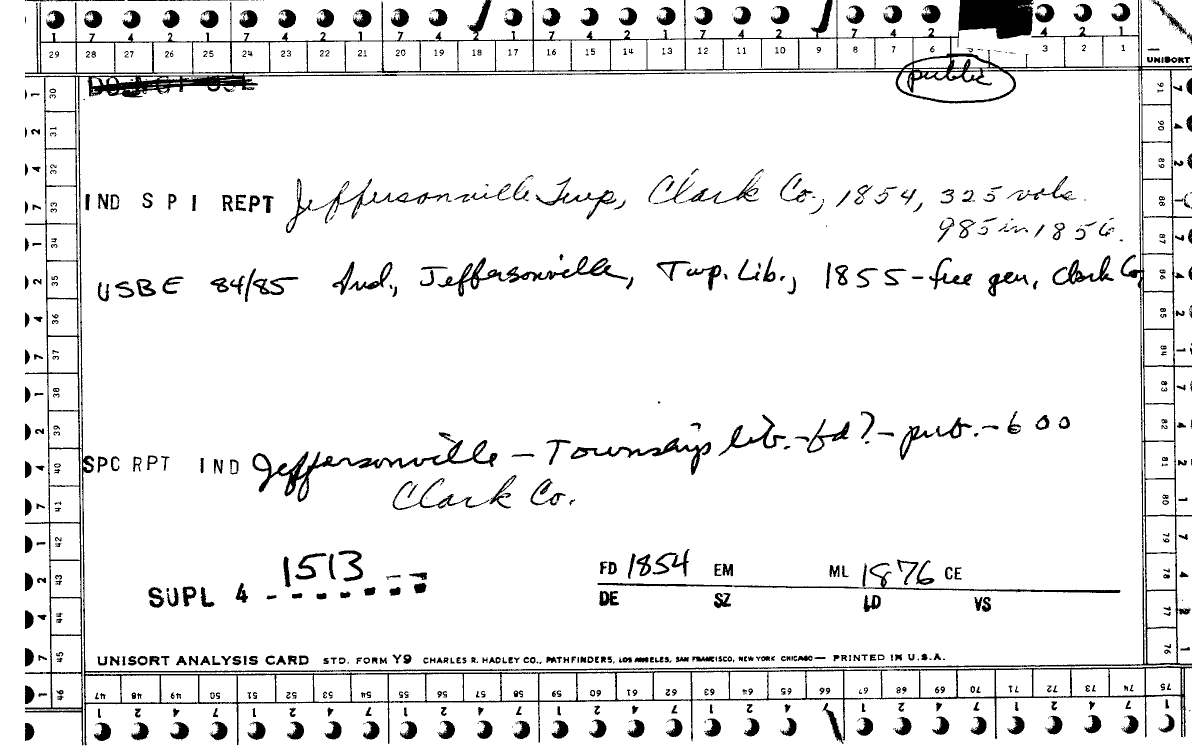 1 7 4 2 1 7 4 2 1 7 4 2 1 7 4 2 1 7 4 2 1 7 4 2 4 2 1
29 28 27 26 25 24 23 22 21 20 19 18 17 16 15 14 13 12 11 10 9 8 7 6 3 2 1
UNISORT
DO NOT USE
public
IND S P I REPT Jeffersonville Twp, Clark Co., 1854, 325 vols.
985 in 1856.
USBE 84/85 Ind., Jeffersonville, Twp. Lib., 1855-free gen, Clark Co,
SPC RPT IND Jeffersonville - Township lib.-fd?-pub.-600
Clark Co.
SUPL 4 1513
FD 1854 EM ML 1876 CE
DE SZ LD VS
UNISORT ANALYSIS CARD STD. FORM Y9 CHARLES R. HADLEY CO., PATHFINDERS, LOS ANGELES, SAN FRANCISCO, NEW YORK CHICAGO — PRINTED IN U.S.A.
30 31 32 33 34 35 36 37 38 39 40 41 42 43 44 45 46
91 90 89 88 87 86 85 84 83 82 81 80 79 78 77 76
47 48 49 50 51 52 53 54 55 56 57 58 59 60 61 62 63 64 65 66 67 68 69 70 71 72 73 74 75
1 2 4 7 1 2 4 7 1 2 4 7 1 2 4 7 1 2 4 7 1 2 4 7 1 2 4 7 1